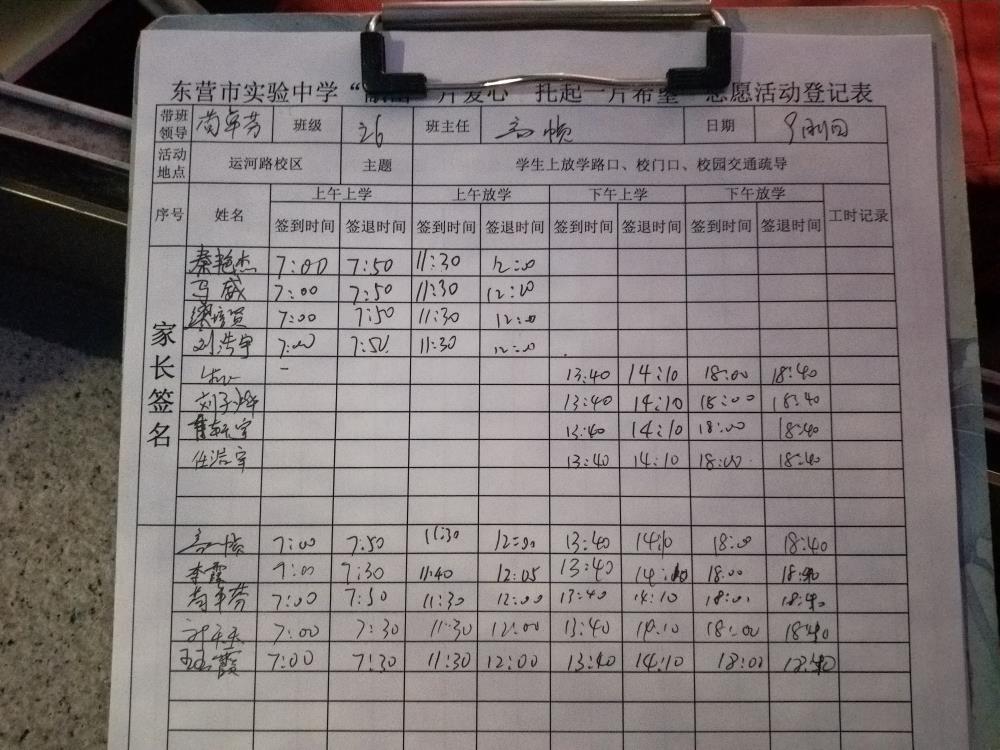 东营市实验中学“献出一片爱心 托起一片希望”志愿活动登记表
带班领导 尚军芬 班级 班主任 高帧 日期
活动地点 运河路校区 主题 学生上放学路口、校门口、校园交通疏导
序号 姓名 上午上学 上午放学 下午上学 下午放学 工时记录
签到时间 签退时间 签到时间 签退时间 签到时间 签退时间 签到时间 签退时间
家长签名
秦艳杰 7:00 7:50 11:30 12:00
马威 7:00 7:50 11:30 12:00
7:00 7:50 11:30 12:00
刘浩宇 7:00 7:50 11:30 12:00
13:40 14:10 18:00 18:40
刘子烨 13:40 14:10 18:00 18:40
13:40 14:10 18:00 18:40
任浩宇 13:40 14:10 18:00 18:40
高帧 7:00 7:50 11:30 12:00 13:40 14:10 18:00 18:40
李霞 7:00 7:30 11:40 12:05 13:40 14:10 18:00 18:40
尚军芬 7:00 7:50 11:30 12:00 13:40 14:10 18:00 18:40
7:00 7:30 11:30 12:00 13:40 14:10 18:00 18:40
王玉霞 7:00 7:30 11:30 12:00 13:40 14:10 18:00 18:40